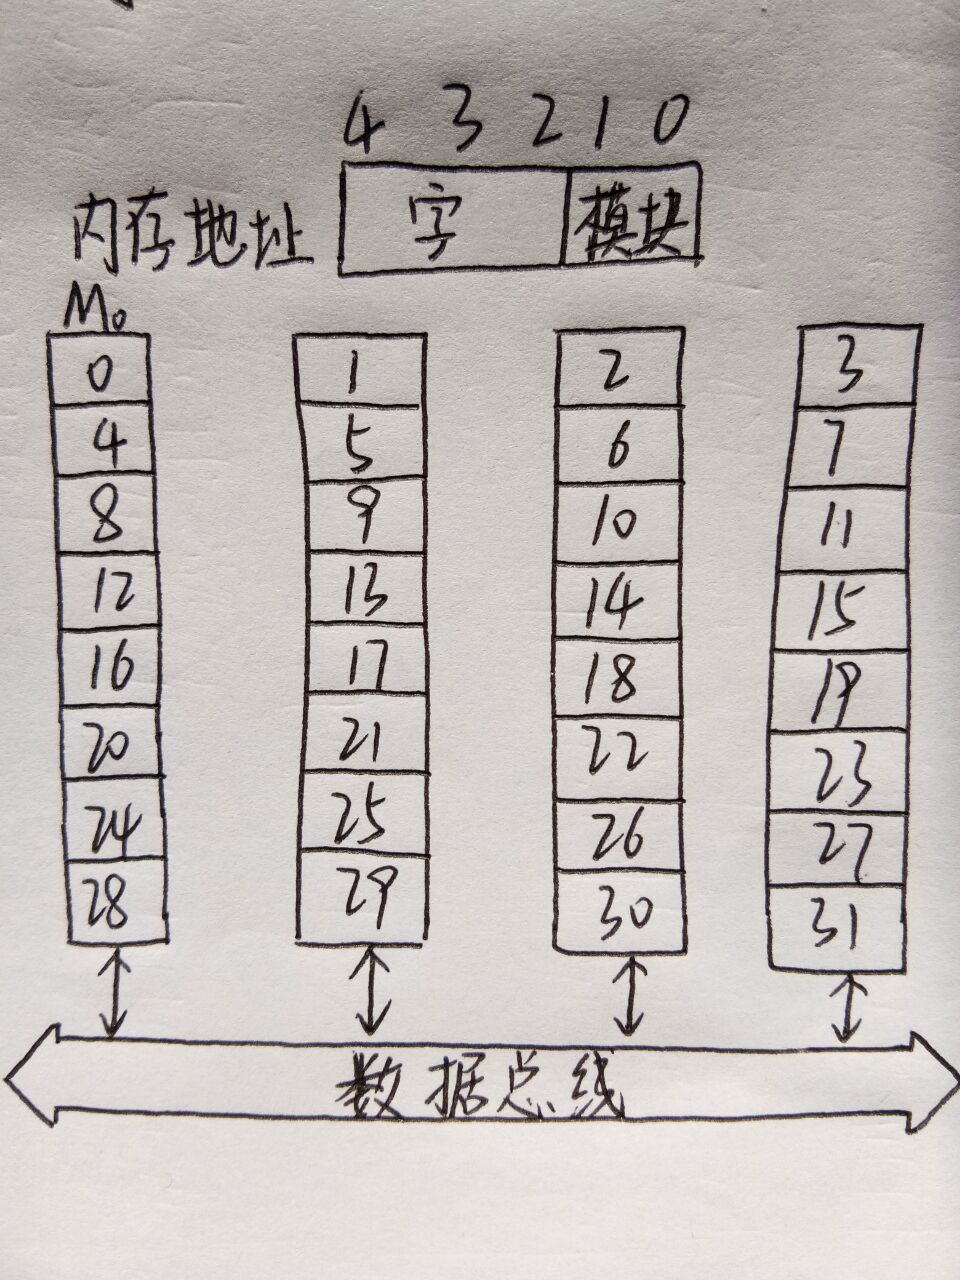 4 3 2 1 0
内存地址 字 模块
M0
0 1 2 3
4 5 6 7
8 9 10 11
12 13 14 15
16 17 18 19
20 21 22 23
24 25 26 27
28 29 30 31
数据总线